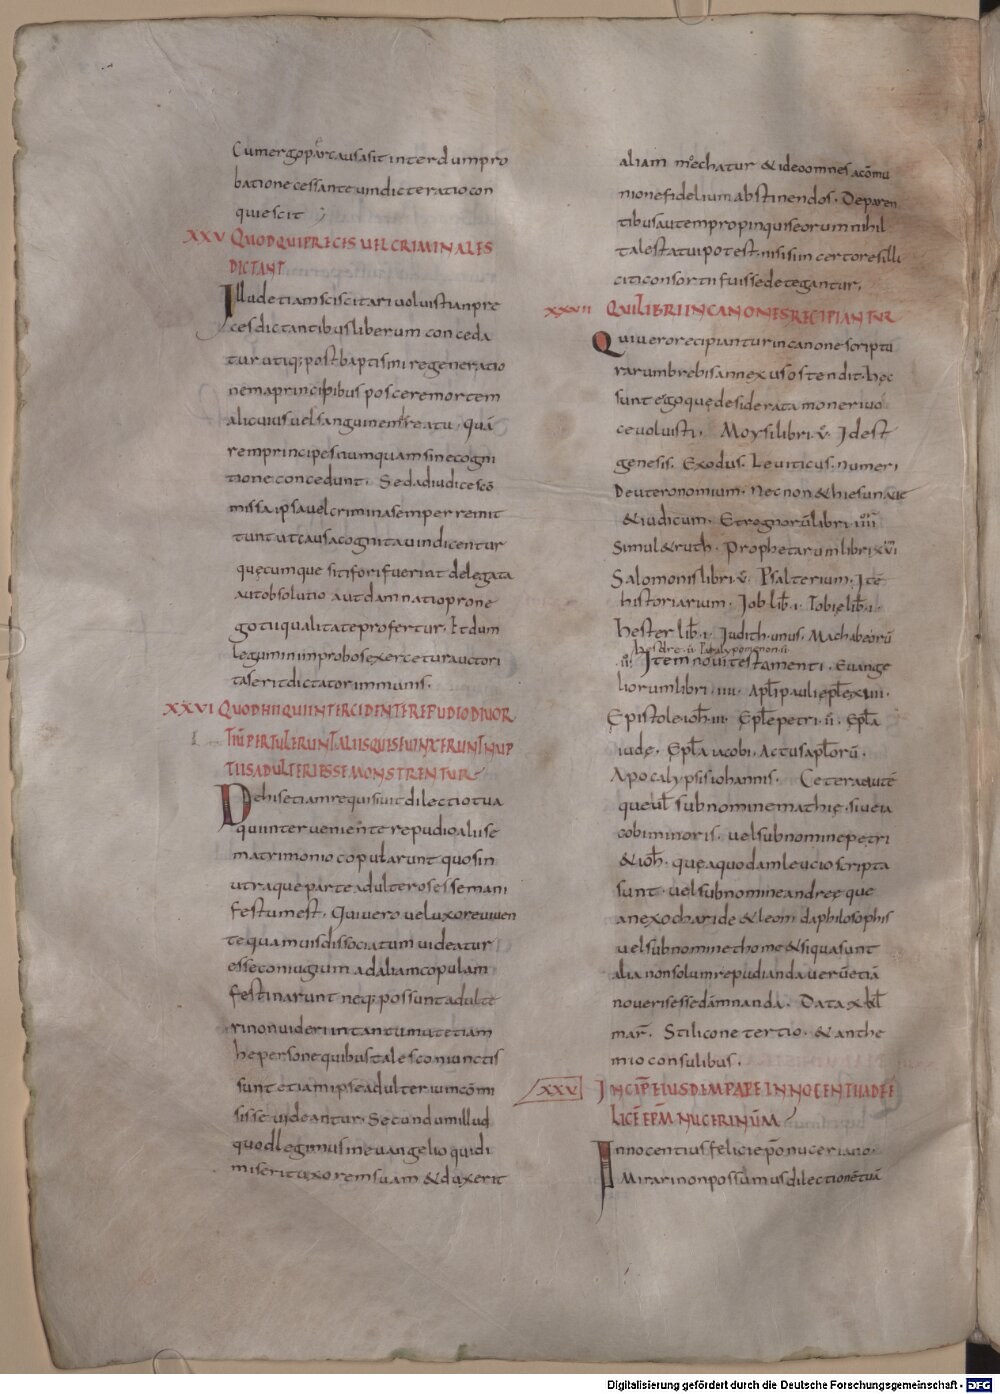 Cum ergo par causa sit interdum pro
batione cessante vindicte ratio con
quiescit ;
XXV QUOD QUI PRECIS VEL CRIMINALES
DICTANT
Illud etiam sciscitari voluisti an pre
ces dictantibus liberum conceda
tur utiq; post baptismi regeneratio
nem a principibus poscere mortem
alicuius vel sanguinem reatu. quã
rem principes numquam sine cogni
tione concedunt. Sed ad iudices cõ
missa ipsa vel crimina semper remit
tunt ut causa cognita vindicentur
quęcumque sitifori fuerint delegata
aut obsolutio aut damnatio prone
gotu qualitate profertur. Et dum
legum in improbos exercetur auctori
tas erit dictator immunis.
XXVI QUOD HII QUI INTERCIDENTE REPUDIO DIVOR
TIŨ PERTULERUNT ALIIS QUI SE VINXERUNT NUP
TIIS ADULTERI ESSE MONSTRENTUR
De his etiam requisivit dilectio tua
qui interveniente repudio alii se
matrimonio copularunt quos in
utraque parte adulteros esse mani
festum est. Qui vero vel uxore viven
te quamvis dissociatum videatur
esse coniugium ad aliam copulam
festinarunt neq; possunt adulte
ri non videri in tantum ut etiam
he persone quibus tales coniunctis
sunt etiam ipse adulterium cõmi
sisse videantur. Secundum illud
quod legimus in evangelio qui di
miserit uxorem suam & duxerit
aliam męchatur & ideo omnes a cõmu
nione fidelium abstinendos. De paren
tibus autem propinquis eorum nihil
tale statui potest. nisi si incertores illi
citi consortii fuisse detegantur,
XXVII QUI LIBRI IN CANONE S RECIPIANTUR
Qui vero recipiantur in canone scriptu
rarum brebis annexus ostendit. hęc
sunt ego quę desiderata moneri vo
ce voluisti. Moysi libri .v. Id est
genesis. Exodus. Leviticus. numeri
Deuteronomium. Necnon & hiesu nave
& iudicum. Et regnorũ libri .iiii
Simul & ruth. Prophetarum libri xvi
Salomonis libri .v. Psalterium. Itẽ
historiarum. Job lib. i. Tobię lib. i.
hester lib. i. Judith. unus. Machabeorũ
hesdre .ii. Paralypomenon .ii.
.ii. Item novi testamenti. Evange
liorum libri .iiii. Apli pauli eplę xiiii.
Epistole ioh. iii. Eple petri .ii. Epla
iudę. Epla iacobi. Actus aplorũ.
Apocalypsis iohannis. Cetera autẽ
que vel sub nomine mathię. sive ia
cobi minoris. vel sub nomine petri
& ioh. quę a quodam leucio scripta
sunt. vel sub nomine andreę que
anexocharide & leonidaphilosophis
vel sub nomine thome & si qua sunt
alia non solum repudianda verũ etiã
noveris esse dãmnanda. Data x kl
mar. Stilicone tertio. & anthe
mio consulibus.
XXV INCIP EIUSDEM PAPE INNOCENTII AD FE
LICĒ EPM NUCERINŨM
Innocentius felici epõ nuceriano.
Mirari non possũmus dilectionẽ tuã
Digitalisierung gefördert durch die Deutsche Forschungsgemeinschaft - DFG